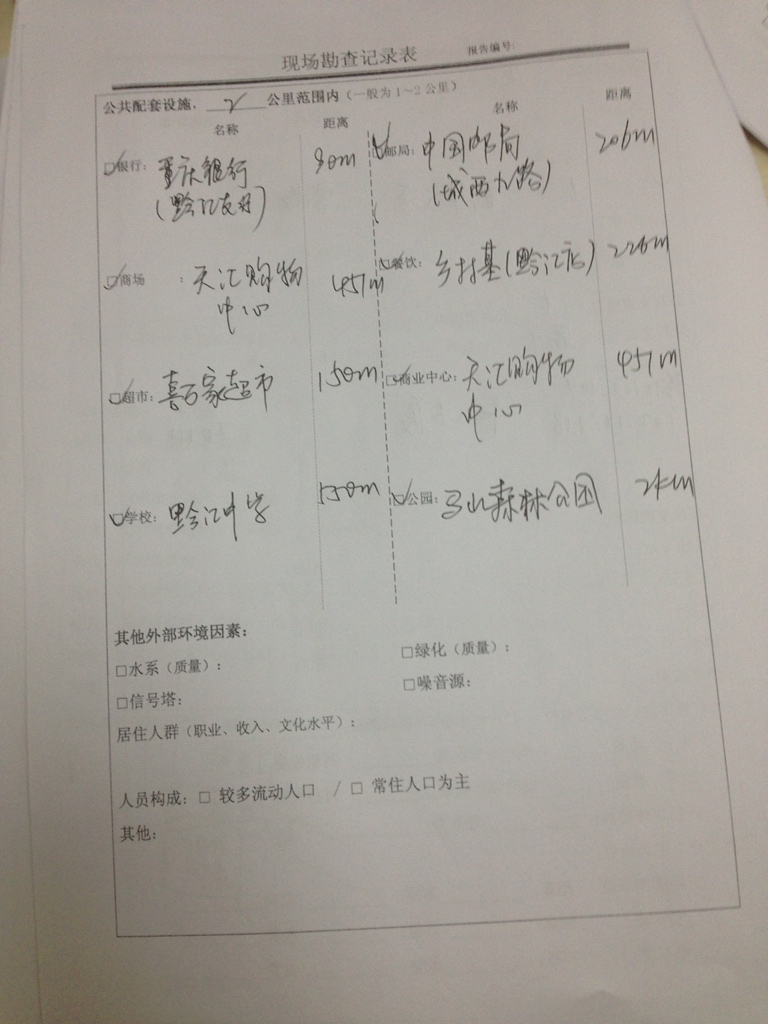 现场勘查记录表
报告编号:
公共配套设施, 2 公里范围内(一般为1~2公里)
名称 距离 名称 距离
☑银行: 重庆银行 90m ☑邮局: 中国邮局 206m
(黔江支行) (城西九路)
☑商场 : 天汇购物 457m ☑餐饮: 乡村基(黔江店) 226m
中心
☑超市: 喜百家超市 150m ☑商业中心: 天汇购物 457m
中心
☑学校: 黔江中学 550m ☑公园: 森林公园 2km
其他外部环境因素:
□水系(质量): □绿化(质量):
□信号塔: □噪音源:
居住人群(职业、收入、文化水平):
人员构成: □ 较多流动人口 / □ 常住人口为主
其他: